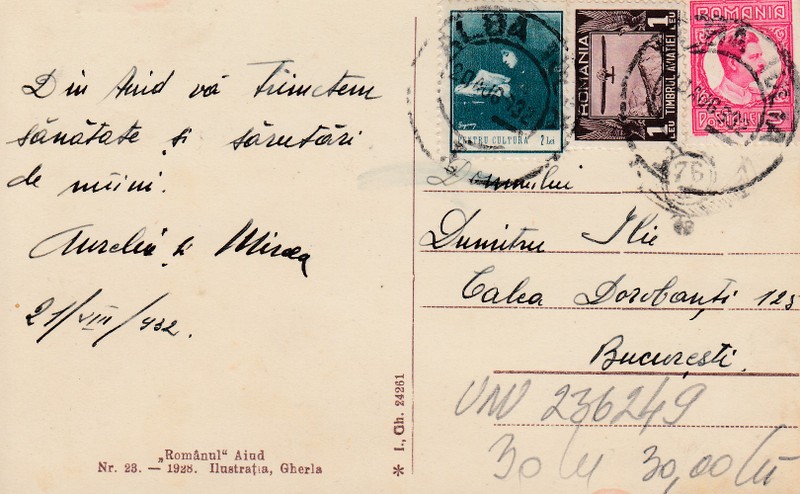 Din Aiud vă trimetem
sănătate și sărutări
de mîini.
Aurelia și Mircea
21/VIII/932.
„Românul" Aiud
Nr. 23. — 1928. Ilustrația, Gherla
* I., Gh. 24261
ALBA
PENTRU CULTURA 2 Lei
1 LEU 1 LEU
ROMANIA
TIMBRUL AVIATIEI
1 LEU 1 LEU
ROMANIA
Domnului
Dumitru Ilie
Calea Dorobanți 125
București.
236249
30 lei 30,00 lei